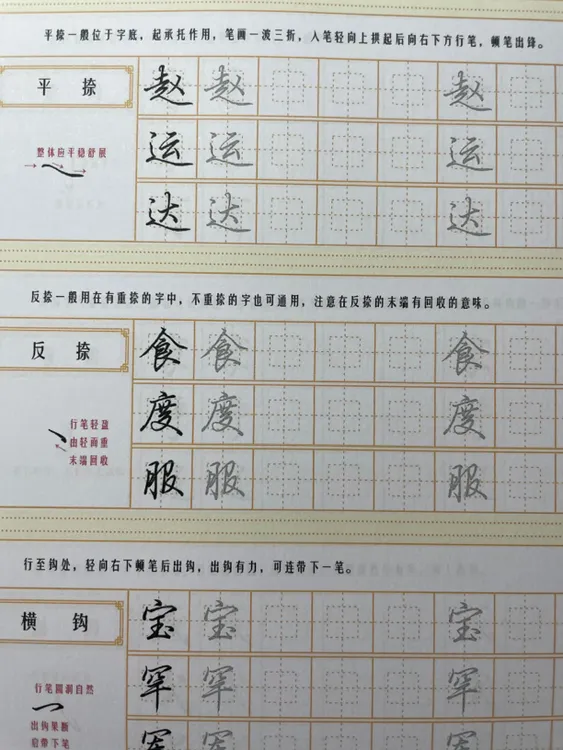 平捺一般位于字底，起承托作用，笔画一波三折，入笔轻向上拱起后向右下方行笔，顿笔出锋。
平捺
赵 赵 赵
整体应平稳舒展
运 运 运
达 达 达
反捺一般用在有重捺的字中，不重捺的字也可通用，注意在反捺的末端有回收的意味。
反捺
食 食 食
度 度 度
行笔轻盈
由轻而重
末端回收
服 服 服
行至钩处，轻向右下顿笔后出钩，出钩有力，可连带下一笔。
横钩
宝 宝 宝
罕 罕 罕
行笔圆润自然
出钩果断
启带下笔